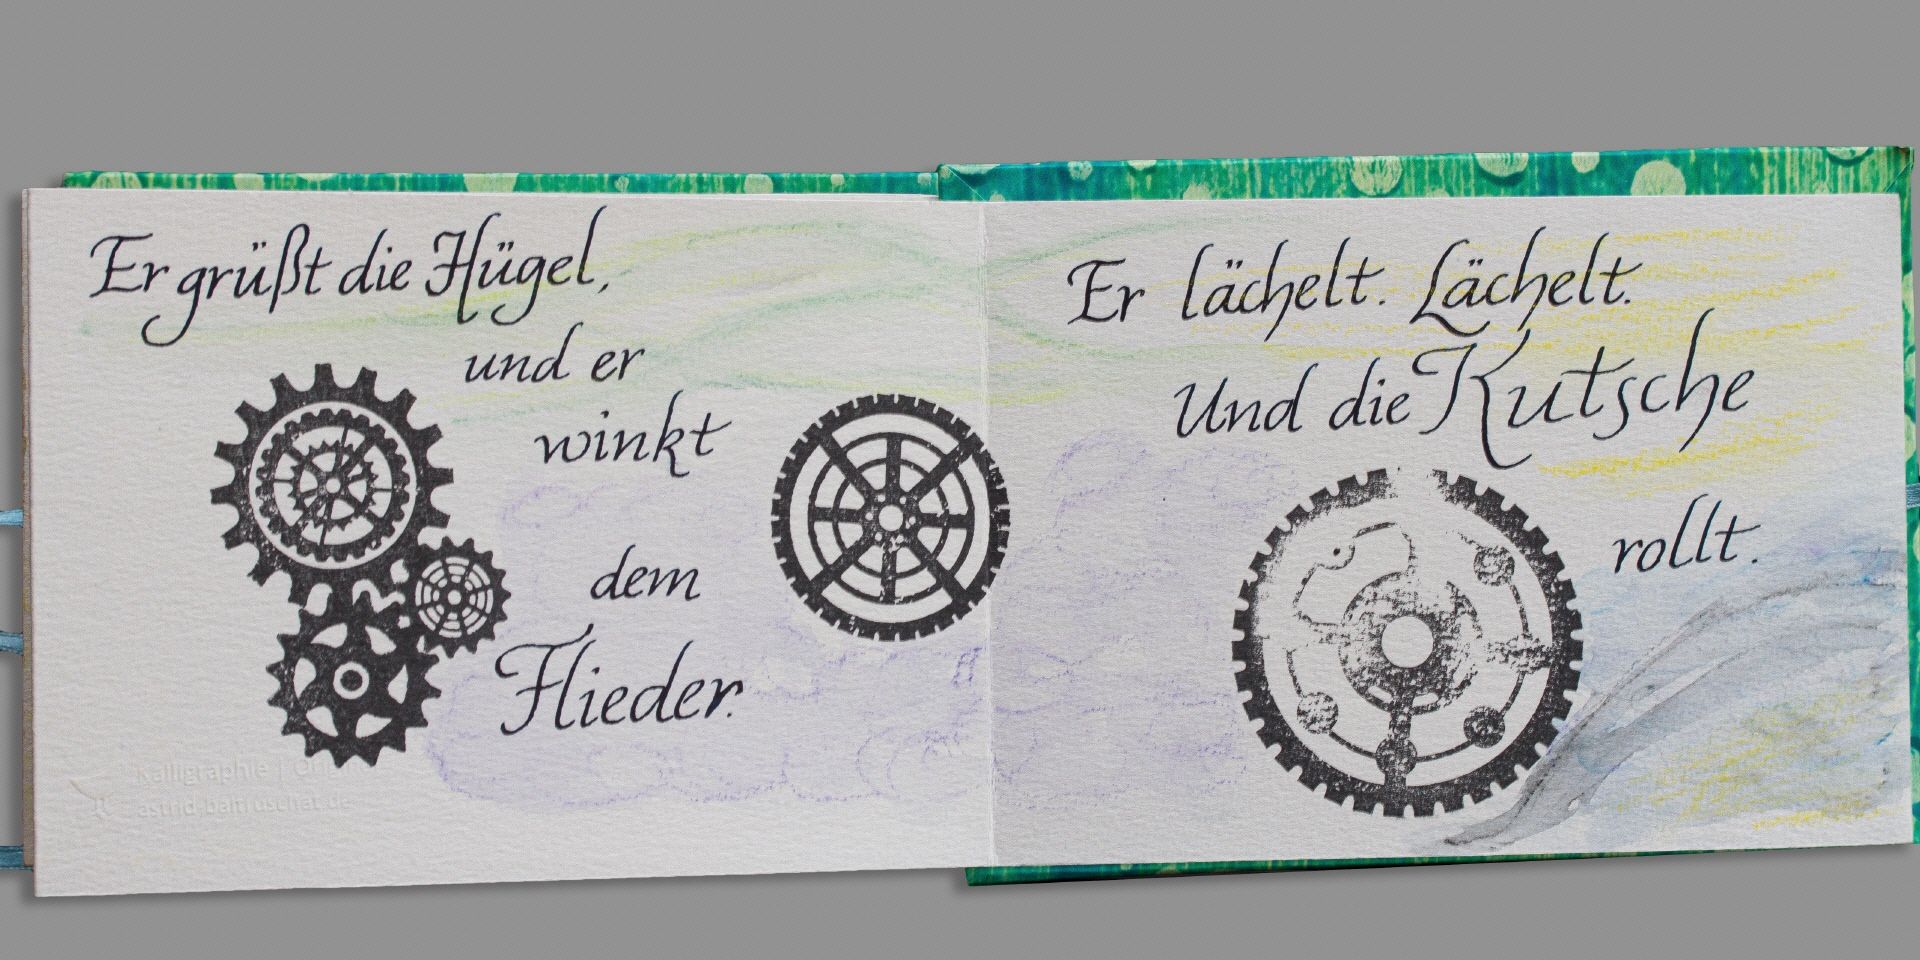 Er grüßt die Hügel,
und er
winkt
dem
Flieder.
Kalligraphie |
astrid.baltruschat.de
Er lächelt. Lächelt.
Und die Kutsche
rollt.